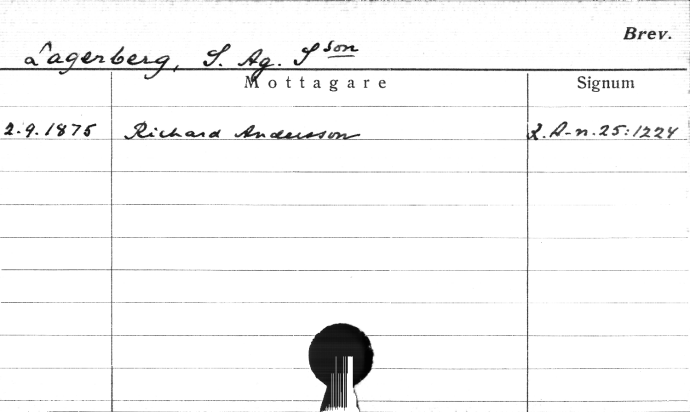 Brev.
Lagerberg, S. Ag. Sson
Mottagare Signum
2.9.1875 Richard Andersson R. A-n. 25:1224